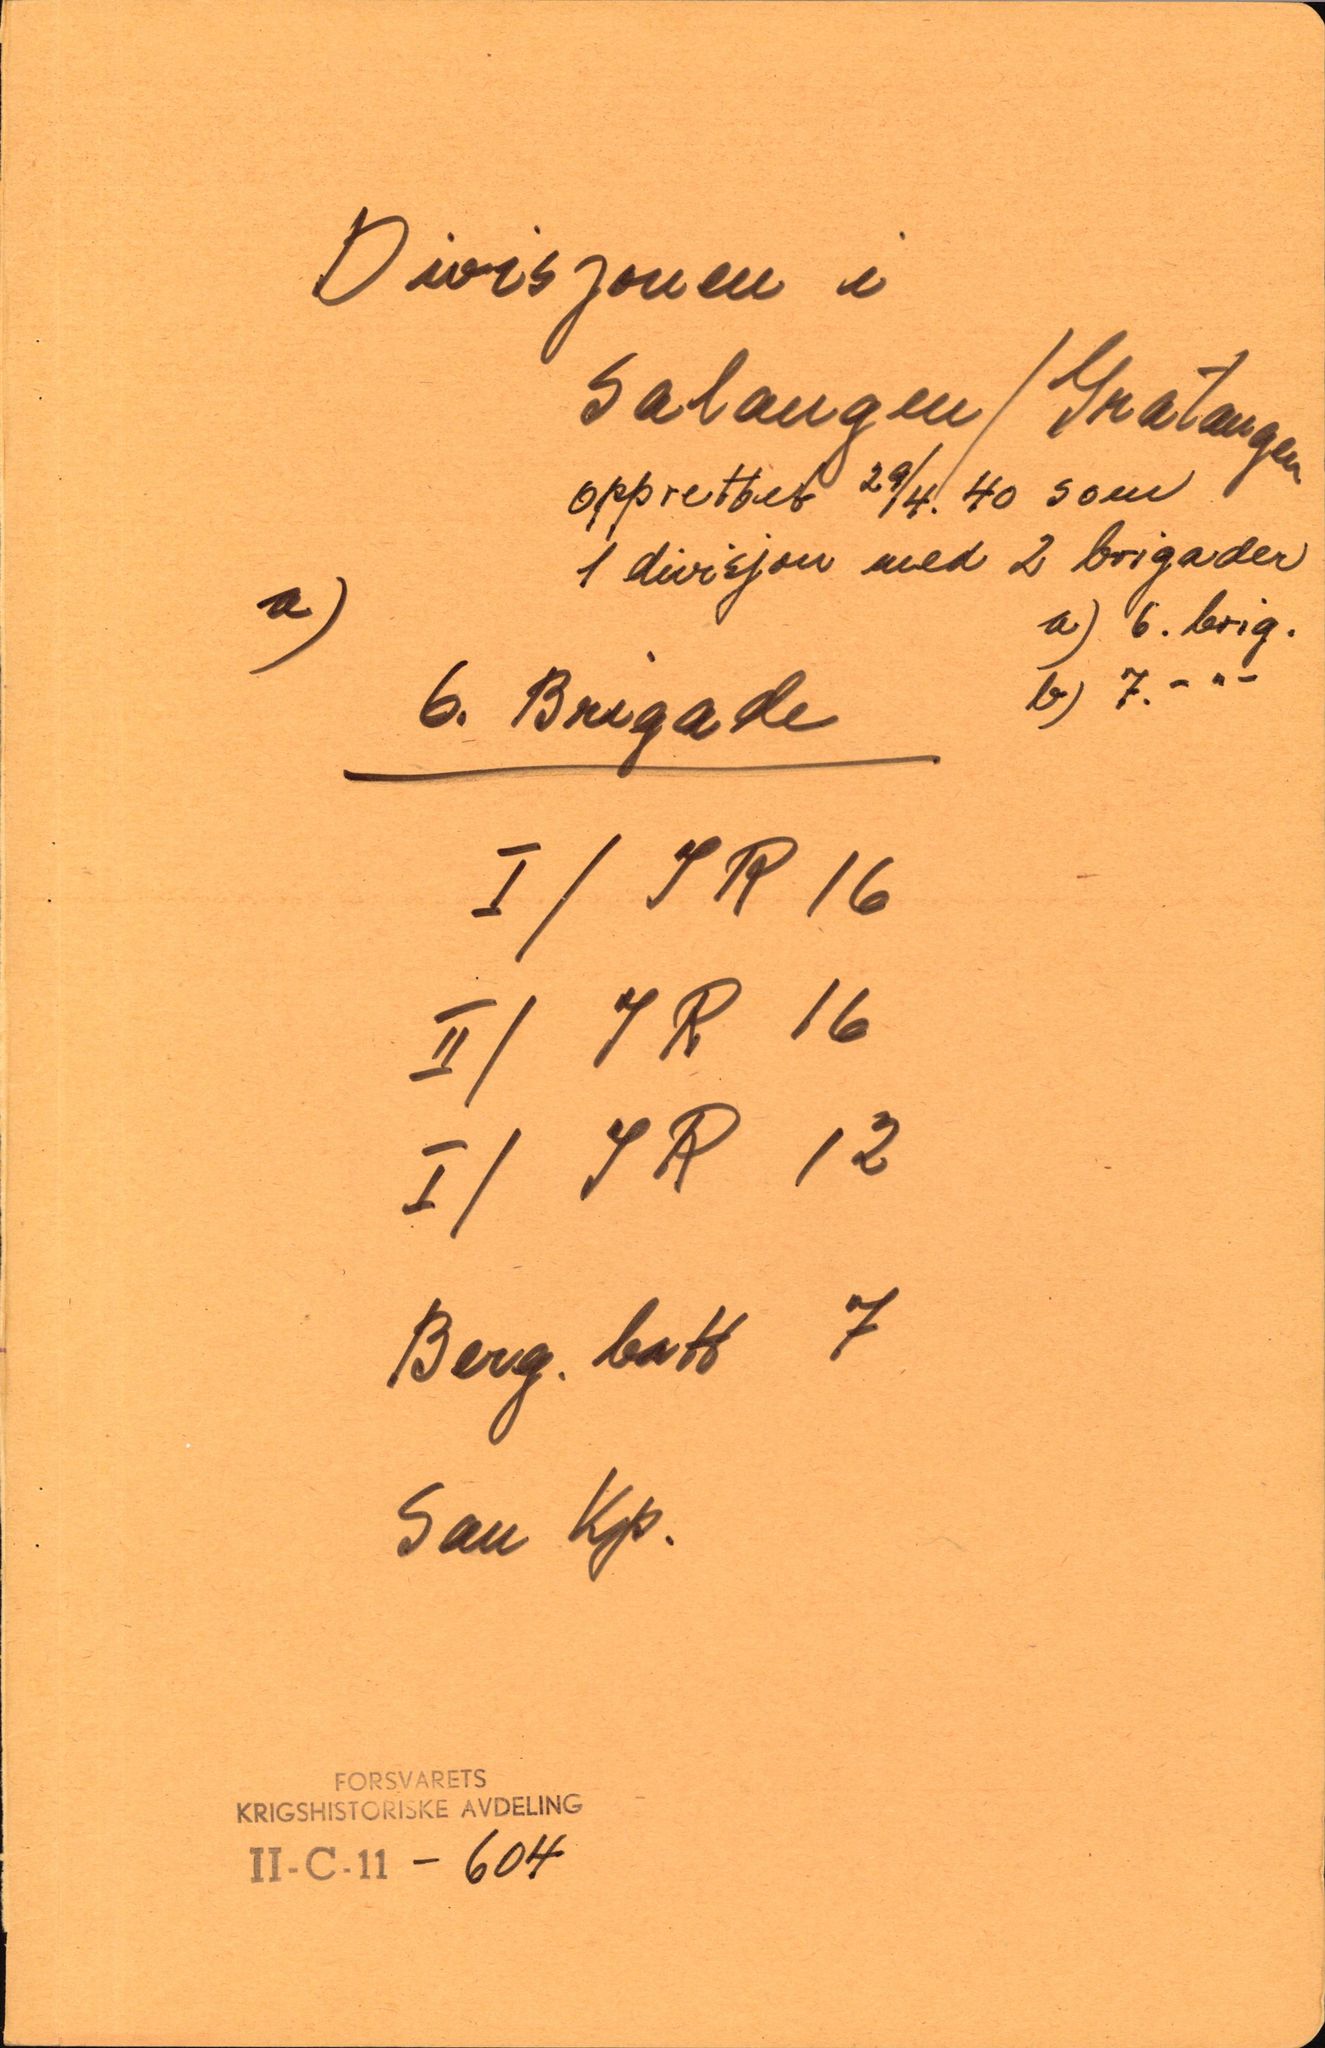 Divisjonen i
Salangen / Gratangen
opprettet 29/4. 40 som
1 divisjon med 2 brigader
a) 6. brig.
b) 7. - " -
a)
6. Brigade
I / IR 16
II / IR 16
I / IR 12
Berg. batt 7
San Kp.
FORSVARETS
KRIGSHISTORISKE AVDELING
II-C-11 - 604